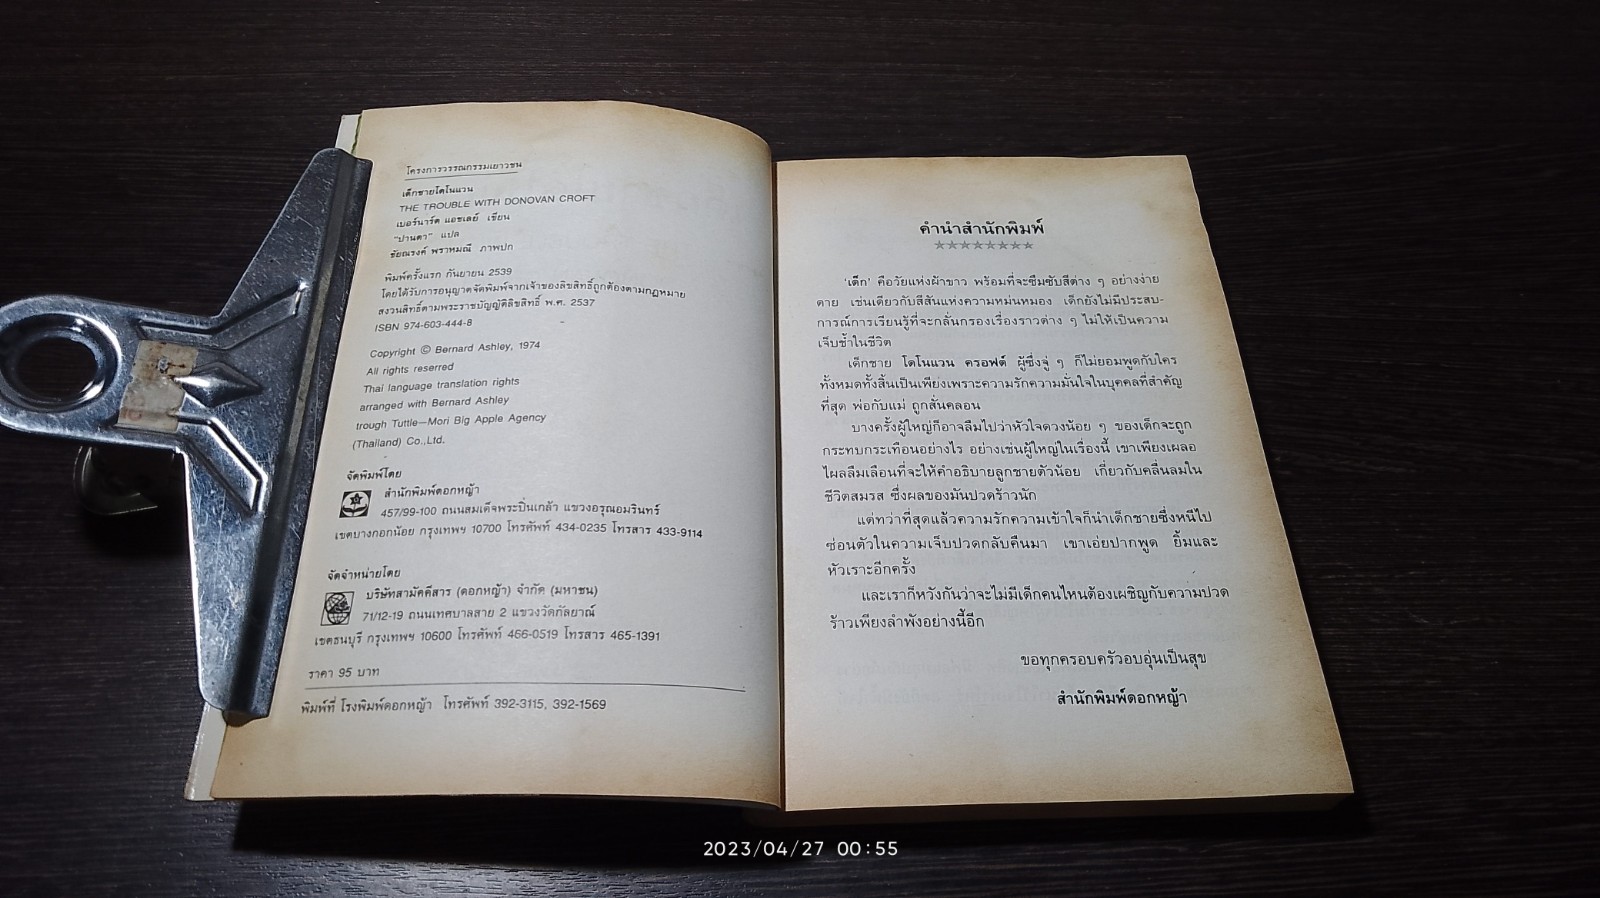 โครงการวรรณกรรมเยาวชน
เด็กชายโดโนแวน
THE TROUBLE WITH DONOVAN CROFT
เบอร์นาร์ด แอชเลย์ เขียน
"ปานตา" แปล
ชัยณรงค์ พราหมณี ภาพปก
พิมพ์ครั้งแรก กันยายน 2539
โดยได้รับการอนุญาตจัดพิมพ์จากเจ้าของลิขสิทธิ์ถูกต้องตามกฎหมาย
สงวนสิทธิ์ตามพระราชบัญญัติลิขสิทธิ์ พ.ศ. 2537
ISBN 974-603-444-8
Copyright © Bernard Ashley, 1974
All rights reserred
Thai language translation rights
arranged with Bernard Ashley
trough Tuttle—Mori Big Apple Agency
(Thailand) Co.,Ltd.
จัดพิมพ์โดย
สำนักพิมพ์ดอกหญ้า
457/99-100 ถนนสมเด็จพระปิ่นเกล้า แขวงอรุณอมรินทร์
เขตบางกอกน้อย กรุงเทพฯ 10700 โทรศัพท์ 434-0235 โทรสาร 433-9114
จัดจำหน่ายโดย
บริษัทสามัคคีสาร (ดอกหญ้า) จำกัด (มหาชน)
71/12-19 ถนนเทศบาลสาย 2 แขวงวัดกัลยาณ์
เขตธนบุรี กรุงเทพฯ 10600 โทรศัพท์ 466-0519 โทรสาร 465-1391
ราคา 95 บาท
พิมพ์ที่ โรงพิมพ์ดอกหญ้า โทรศัพท์ 392-3115, 392-1569
คำนำสำนักพิมพ์
'เด็ก' คือวัยแห่งผ้าขาว พร้อมที่จะซึมซับสีต่าง ๆ อย่างง่าย
ดาย เช่นเดียวกับสีสันแห่งความหม่นหมอง เด็กยังไม่มีประสบ-
การณ์การเรียนรู้ที่จะกลั่นกรองเรื่องราวต่าง ๆ ไม่ให้เป็นความ
เจ็บช้ำในชีวิต
เด็กชาย โดโนแวน ครอฟต์ ผู้ซึ่งจู่ ๆ ก็ไม่ยอมพูดกับใคร
ทั้งหมดทั้งสิ้นเป็นเพียงเพราะความรักความมั่นใจในบุคคลที่สำคัญ
ที่สุด พ่อกับแม่ ถูกสั่นคลอน
บางครั้งผู้ใหญ่ก็อาจลืมไปว่าหัวใจดวงน้อย ๆ ของเด็กจะถูก
กระทบกระเทือนอย่างไร อย่างเช่นผู้ใหญ่ในเรื่องนี้ เขาเพียงเผลอ
ไผลลืมเลือนที่จะให้คำอธิบายลูกชายตัวน้อย เกี่ยวกับคลื่นลมใน
ชีวิตสมรส ซึ่งผลของมันปวดร้าวนัก
แต่ทว่าที่สุดแล้วความรักความเข้าใจก็นำเด็กชายซึ่งหนีไป
ซ่อนตัวในความเจ็บปวดกลับคืนมา เขาเอ่ยปากพูด ยิ้มและ
หัวเราะอีกครั้ง
และเราก็หวังกันว่าจะไม่มีเด็กคนไหนต้องเผชิญกับความปวด
ร้าวเพียงลำพังอย่างนี้อีก
ขอทุกครอบครัวอบอุ่นเป็นสุข
สำนักพิมพ์ดอกหญ้า
2023/04/27 00:55